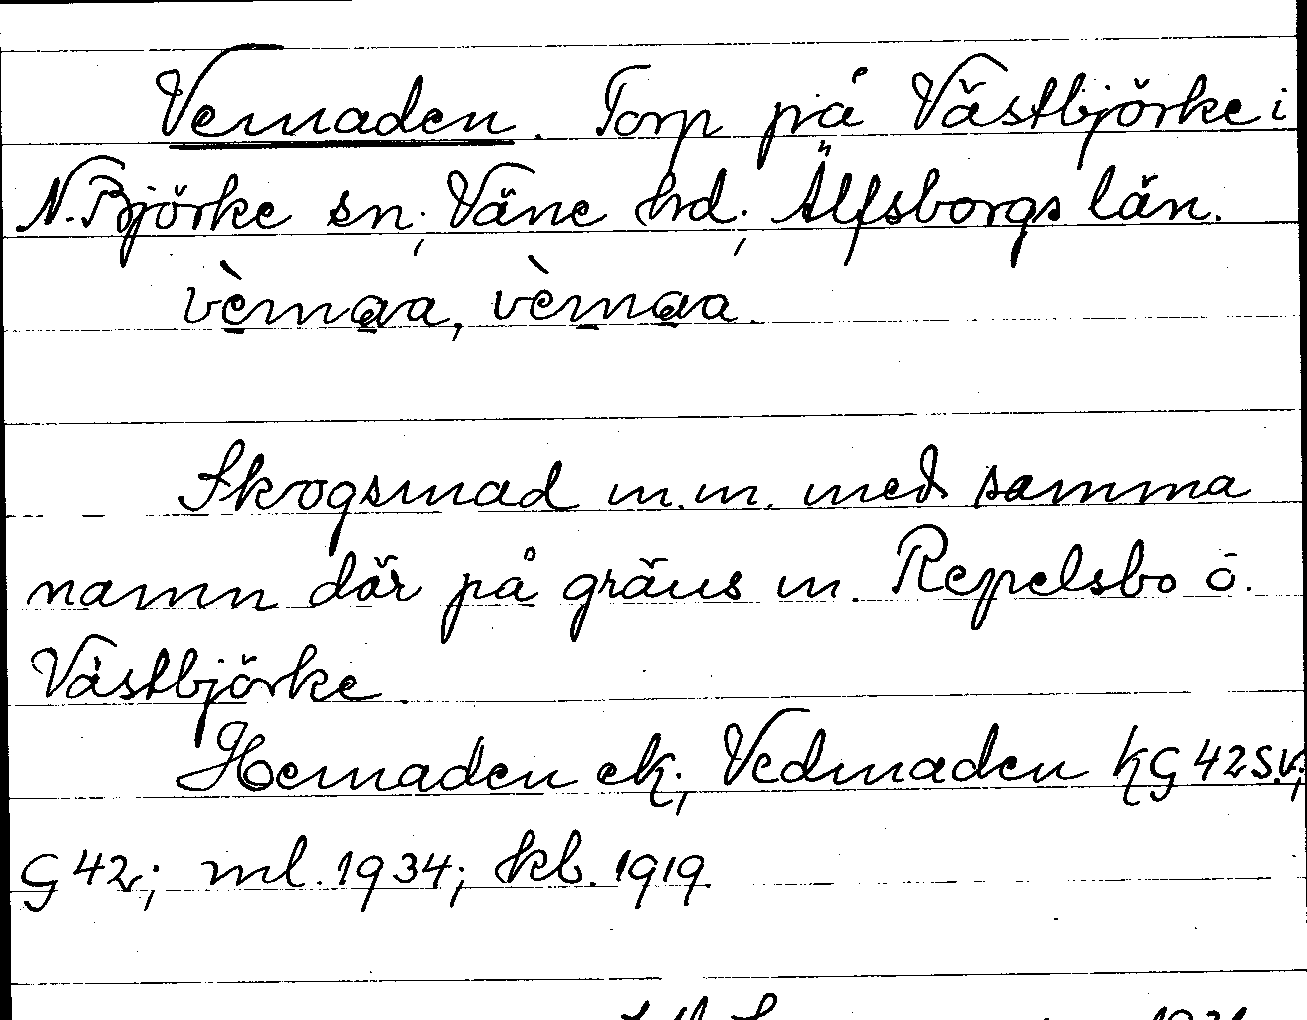 Vemaden. Torp på Västbjörke i
N. Björke sn, Väne hd, Älfsborgs län.
vèmaa, vèmaa.
Skogsmad m.m. med samma
namn där på gräns m. Repelsbo o.
Västbjörke.
Hemaden ek, Vedmaden kG 42 s.v.;
G 42; ml. 1934; kb. 1919.